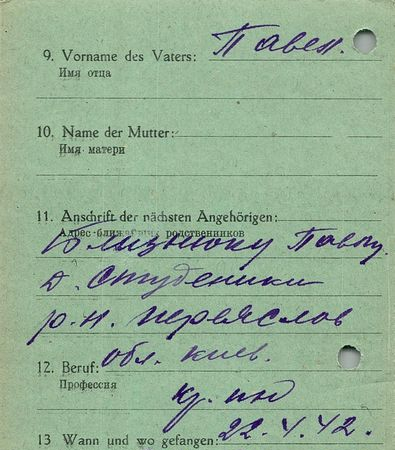 9. Vorname des Vaters: Павел.
Имя отца
10. Name der Mutter:
Имя матери
11. Anschrift der nächsten Angehörigen:
Адрес ближайших родственников
Близнюку Павлу.
д. Студеники
р-н. Переяслов
обл. Киев.
12. Beruf:
Профессия
13 Wann und wo gefangen: 22.4.42.